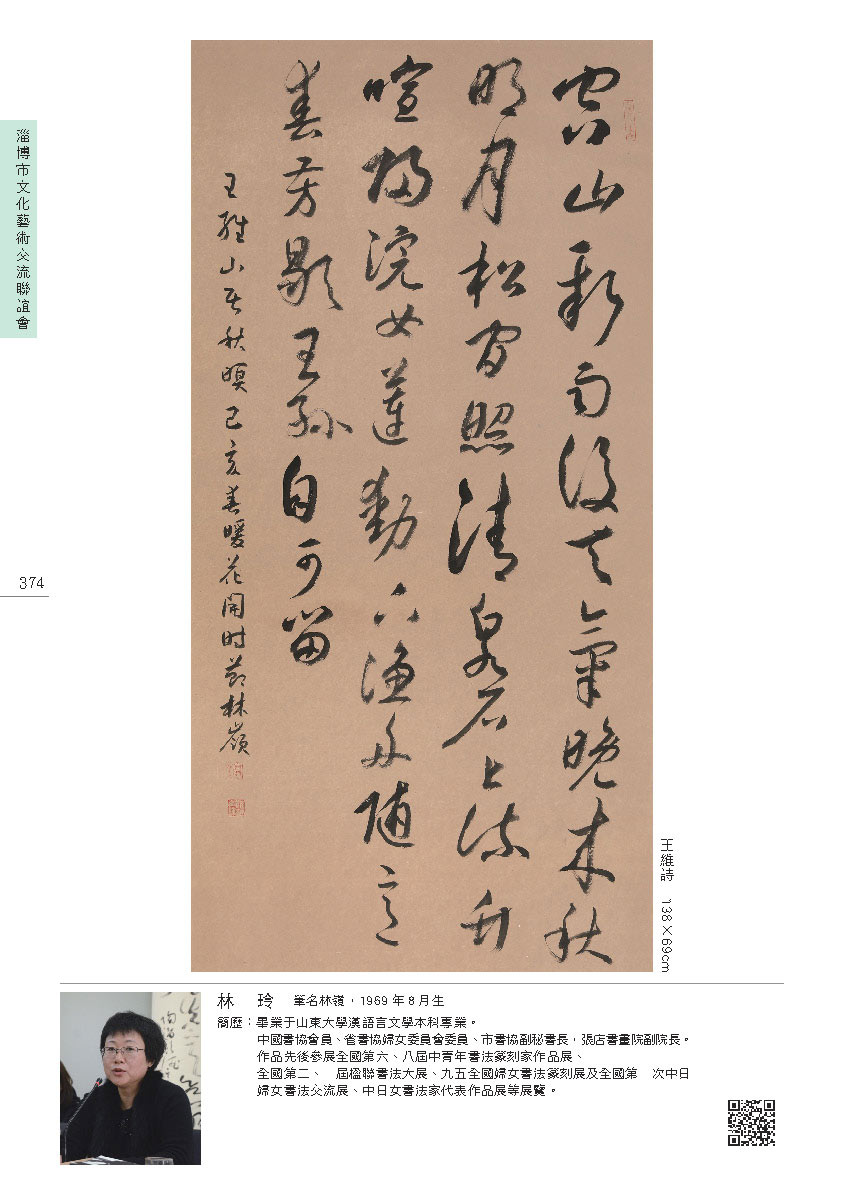 淄博市文化藝術交流聯誼會
374
空山新雨後天氣晚來秋
明月松間照清泉石上流竹
喧歸浣女蓮動下漁舟隨意
春芳歇王孫自可留
王維山居秋暝己亥春暖花開时節林嶺
王維詩　138×69cm
林　玲　筆名林嶺，1969 年 8 月生
簡歷：畢業于山東大學漢語言文學本科專業。
中國書協會員、省書協婦女委員會委員、市書協副秘書長，張店書畫院副院長。
作品先後參展全國第六、八屆中青年書法篆刻家作品展、
全國第二、　屆楹聯書法大展、九五全國婦女書法篆刻展及全國第　次中日
婦女書法交流展、中日女書法家代表作品展等展覽。